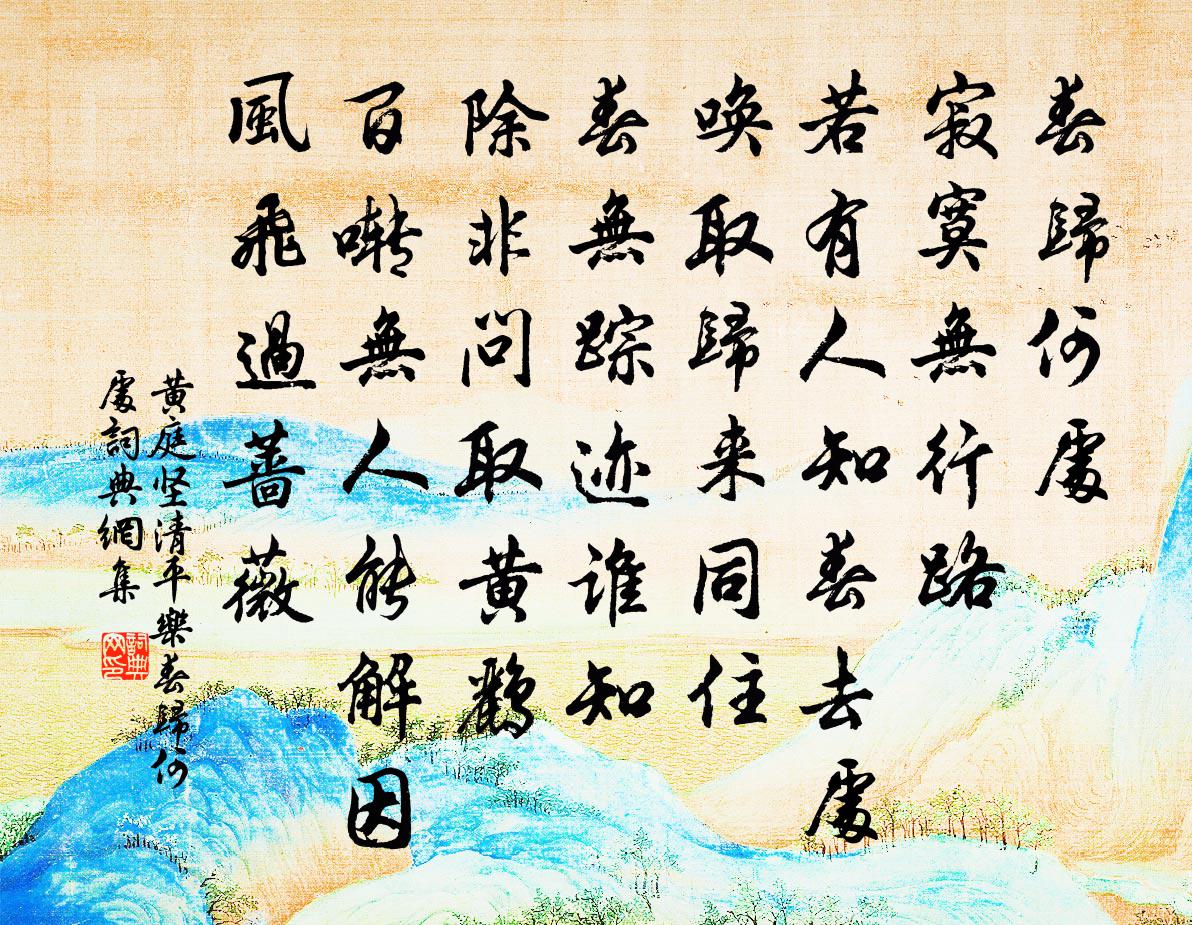 春歸何處
寂寞無行路
若有人知春去處
唤取歸来同住
春無踪迹谁知
除非問取黄鹂
百啭無人能解因
風飛過薔薇
黄庭坚清平樂春歸何
處詞典網集
詞典
网印